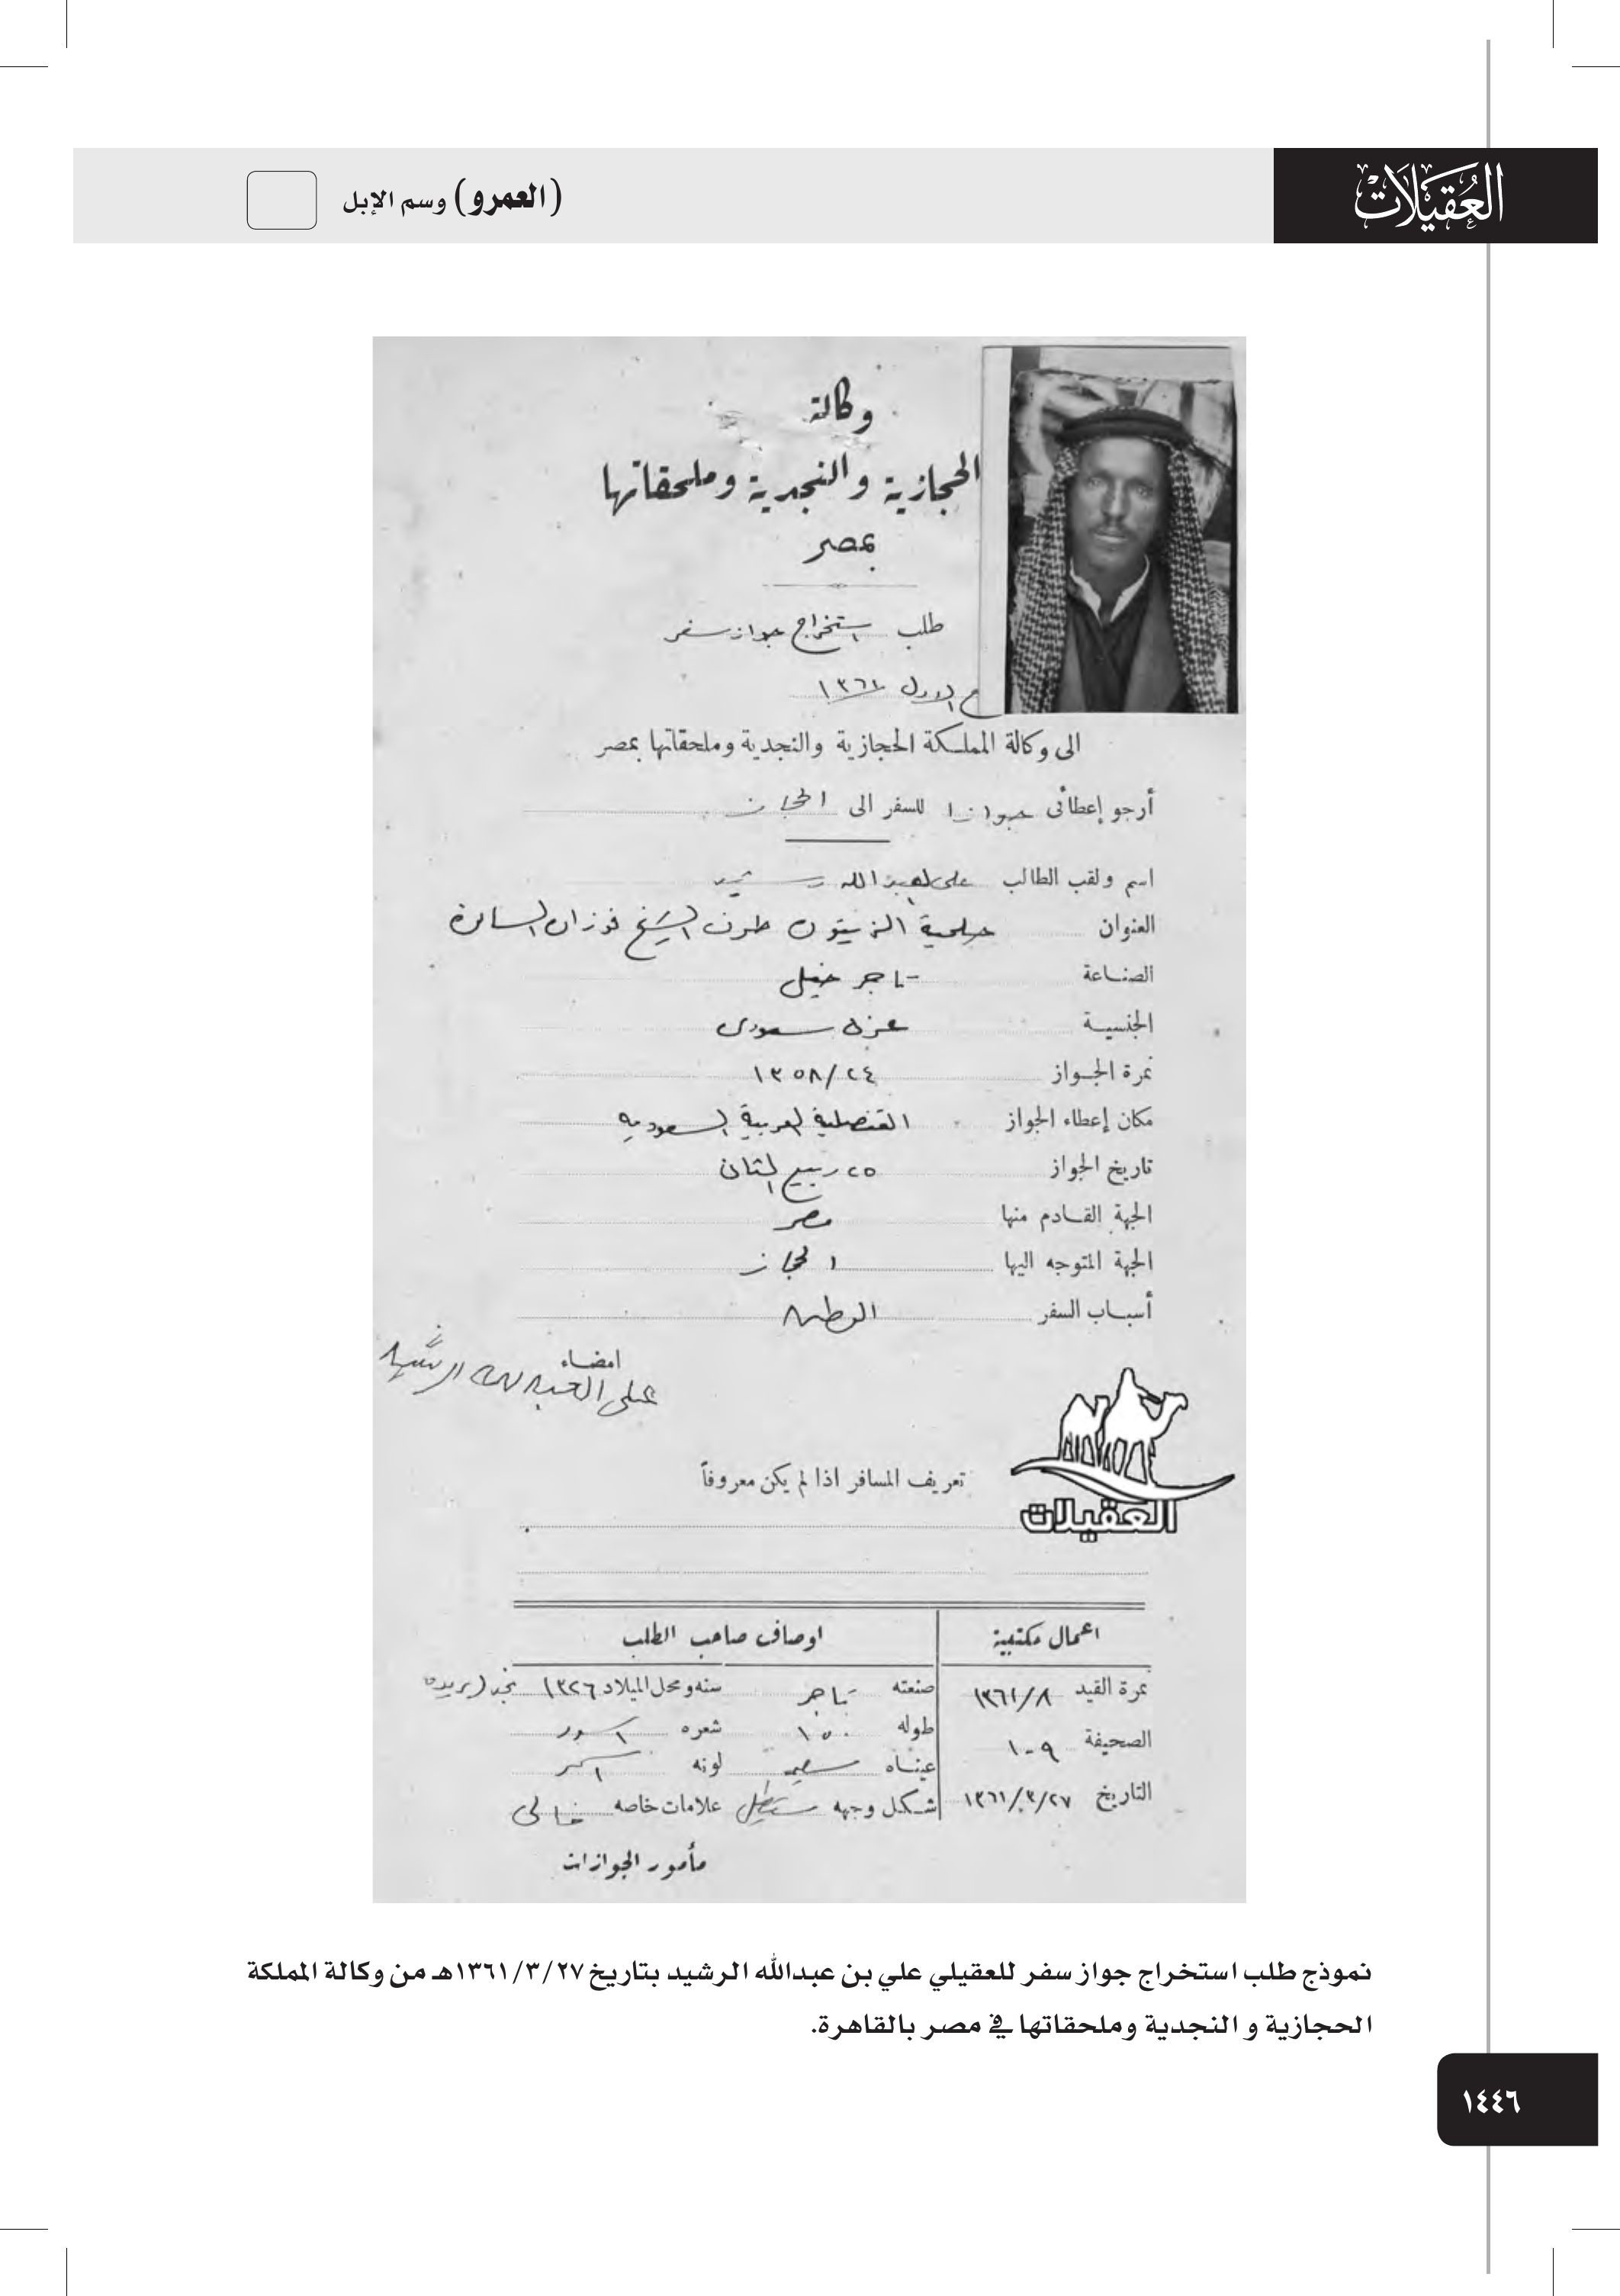 العُقيلات
(العمرو) وسم الإبل
وكالة
الحجازية والنجدية وملحقاتها
بمصر
طلب استخراج جواز سفر
ع الاول ١٣٦١
الى وكالة المملكة الحجازية والنجدية وملحقاتها بمصر
أرجو إعطائى جوازا للسفر الى الحجاز
اسم ولقب الطالب على العبدالله رشيد
العنوان حلمية الزيتون طرف الشيخ فوزان السابق
الصناعة تاجر خيل
الجنسية سعودى
نمرة الجواز ١٣٥٨/٢٤
مكان إعطاء الجواز القنصلية العربية السعوديه
تاريخ الجواز ٢٥ ربيع الثانى
الجهة القادم منها مصر
الجهة المتوجه اليها الحجاز
أسباب السفر
امضاء
على العبدالله الرشيد
تعريف المسافر اذا لم يكن معروفاً
العقيلات
اعمال مكتبية
اوصاف صاحب الطلب
نمرة القيد ١٣٦١/٨ صنعته تاجر سنه ومحل الميلاد ١٣٢٦ نجد بريده
الصحيفة ١٠٩ طوله ١٥٠ شعره اسود
عيناه لونه اسمر
التاريخ ١٣٦١/٣/٢٧ شكل وجهه مستطيل علامات خاصه خالى
مأمور الجوازات
نموذج طلب استخراج جواز سفر للعقيلي علي بن عبدالله الرشيد بتاريخ ١٣٦١/٣/٢٧هـ من وكالة المملكة
الحجازية و النجدية وملحقاتها في مصر بالقاهرة.
١٤٤٦